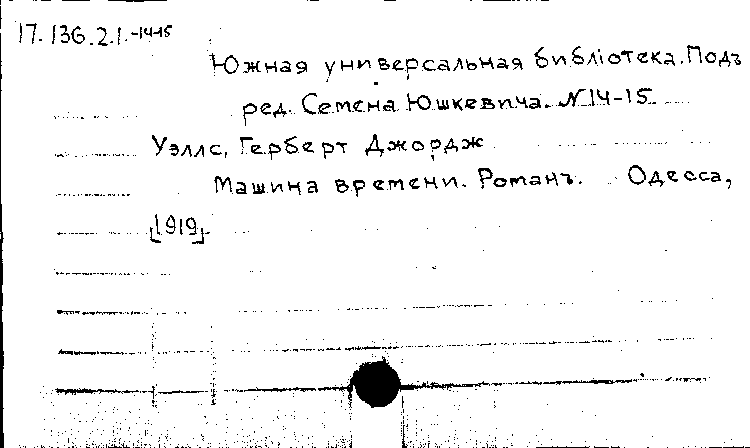 17.136.2.1.-14-15
Южная универсальная библіотека. Подъ
ред. Семена Юшкевича. №14-15
Уэллс, Герберт Джордж
Машина времени. Романъ. Одесса,
[1919]